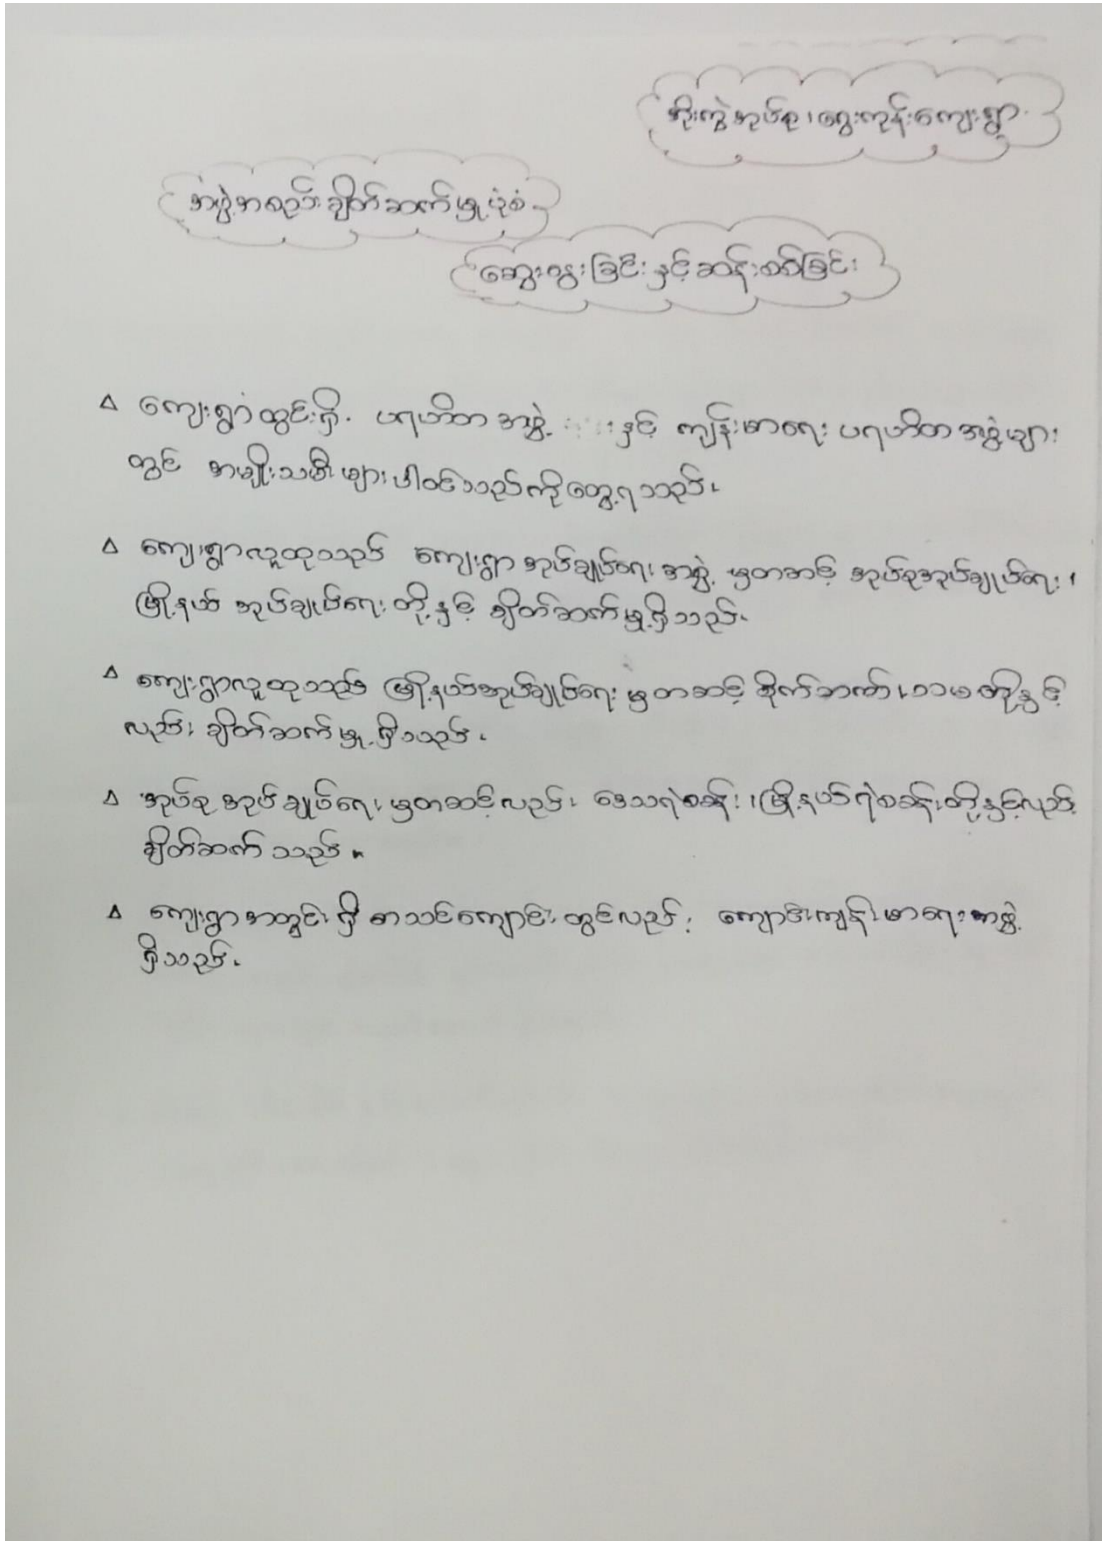 အိုးကွဲအုပ်စု၊ ရွေးကုန်းကျေးရွာ
အဖွဲ့အစည်း ချိတ်ဆက်မှု ပုံစံ
ဆွေးနွေးခြင်း နှင့် ဆန်းစစ်ခြင်း
△ ကျေးရွာ တွင်းရှိ ပရဟိတ အဖွဲ့ နှင့် ကျန်းမာရေး ပရဟိတ အဖွဲ့များ
တွင် အမျိုးသမီး များ ပါဝင်သည်ကို တွေ့ရသည်။
△ ကျေးရွာလူထုသည် ကျေးရွာ အုပ်ချုပ်ရေး အဖွဲ့ မှတဆင့် အုပ်စုအုပ်ချုပ်ရေး ၊
မြို့နယ် အုပ်ချုပ်ရေး တို့နှင့် ချိတ်ဆက်မှု ရှိသည်။
△ ကျေးရွာလူထုသည် မြို့နယ်အုပ်ချုပ်ရေး မှတဆင့် စိုက်ဘဏ် ၊ သမ တို့နှင့်
လည်း ချိတ်ဆက်မှု ရှိသည်။
△ အုပ်စု အုပ်ချုပ်ရေး မှတဆင့်လည်း ဒေသရဲစခန်း ၊ မြို့နယ်ရဲစခန်းတို့နှင့်လည်း
ချိတ်ဆက် သည်။
△ ကျေးရွာ အတွင်း ရှိ စာသင်ကျောင်း တွင်လည်း ကျောင်းကျန်းမာရေး အဖွဲ့
ရှိသည်။